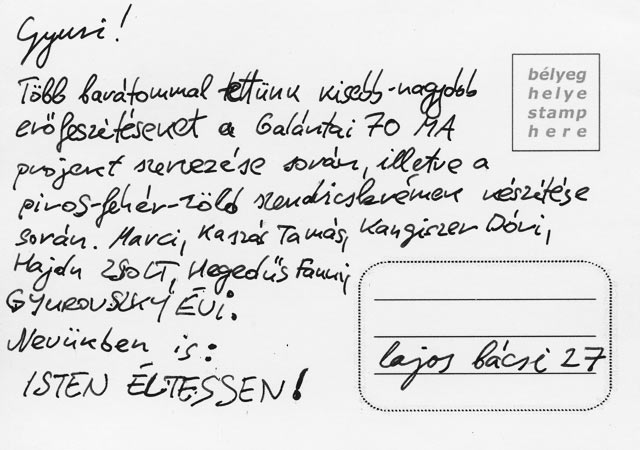 Gyuri!
bélyeg
helye
stamp
here
Több barátommal tettünk kisebb-nagyobb
erőfeszítéseket a Galántai 70 MA
projekt szervezése során, illetve a
piros-fehér-zöld szendvicskrémek készítése
során. Marci, Kaszás Tamás, Kangiszer Dóri,
Hajdu ZSOLT, Hegedűs Fanni,
GYUROVSZKY ÉVI.
Nevükben is:
ISTEN ÉLTESSEN!
Lajos bácsi 27